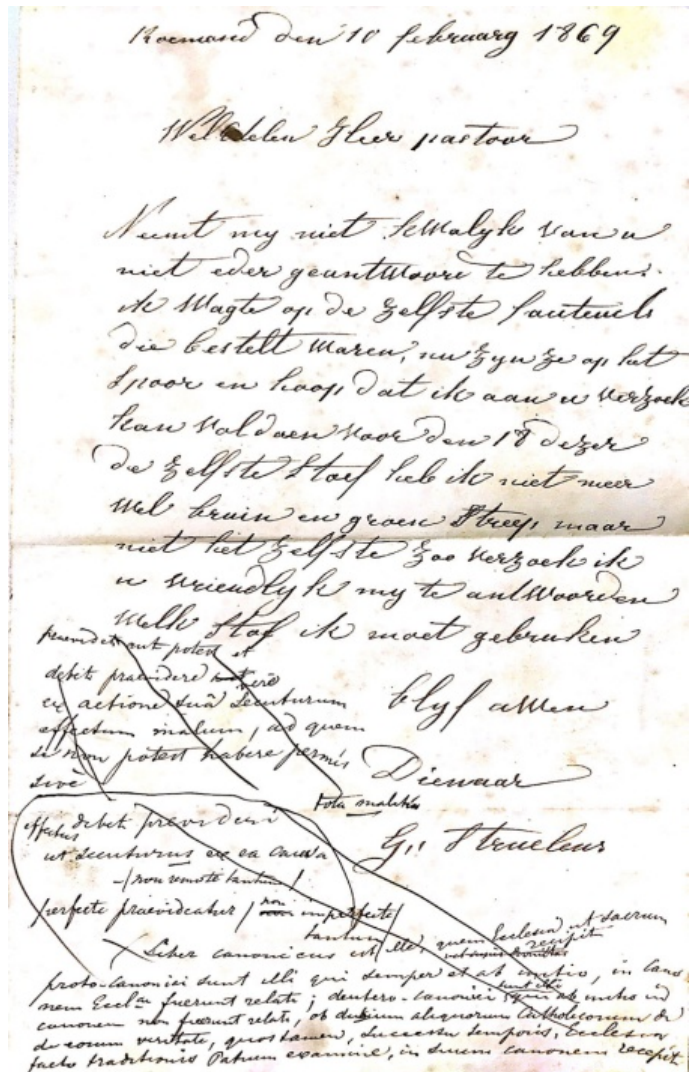 Roermond den 10 februarg 1869
WelEdelen Heer pastoor
Neemt my niet kwalyk van u
niet eder geantwoord te hebben.
ik wagte op de zelfste fauteuils
die bestelt waren, nu zyn ze op het
spoor en hoop dat ik aan u verzoek
kan voldoen voor den 18 dezer
de zelfste Stof heb ik niet meer
wel bruin en groen Streep maar
niet het zelfste zoo verzoek ik
u vriendlyk my te antwoorden
welk Stof ik moet gebruken
blyf uwen
Dienaar
praevidet aut potest et
debit praevidere
ex actione suâ secuturum
effectum malum, ad quem
se non potest habere permis
sivè
tota
effectus debit praevideri
ut secuturus ex ea causa
-/non remote tantum/
perfecte praevideatur /non imperfecte/
tantum
X Liber canonicus est ille, quem Ecclesia ut sacrum
recipit
proto-canonici sunt illi qui semper et ab initio, in cano
nem Eccl. fuerunt relati; deutero-canonici sunt illi qui ab initio in
canonem non fuerunt relati, ob dubium aliquorum Catholicorum
de eorum veritate, quos tamen, successu temporis, Ecclesia
facto traditionis Patrum examine, in suum canonem recepit